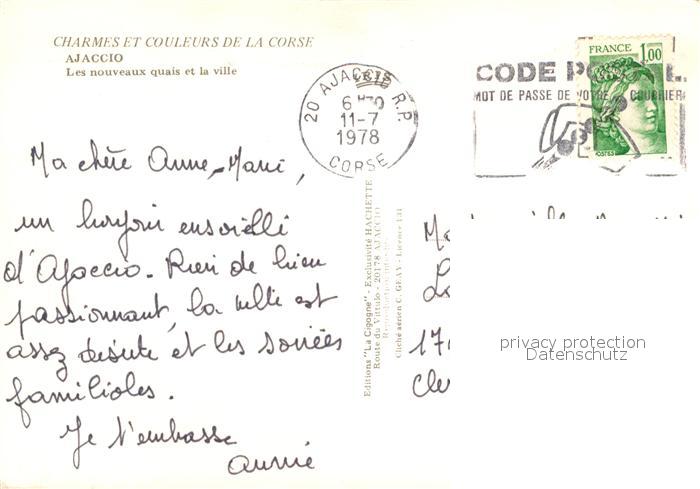 CHARMES ET COULEURS DE LA CORSE
AJACCIO
Les nouveaux quais et la ville
20 AJACCIO R.P.
11-7
1978
CORSE
CODE
MOT DE PASSE DE VOTRE COURRIER
FRANCE 1,00
POSTES
Ma chère Anne-Marie,
un bonjour ensoleillé
d'Ajaccio. Rien de bien
passionnant, la ville est
assez déserte et les soirées
familiales.
Je t'embrasse
Annie
Editions "La Cigogne" - Exclusivité HACHETTE
Route du Vittulo - 20178 AJACCIO
Cliché aérien C. GEAY - Licence 131
privacy protection
Datenschutz